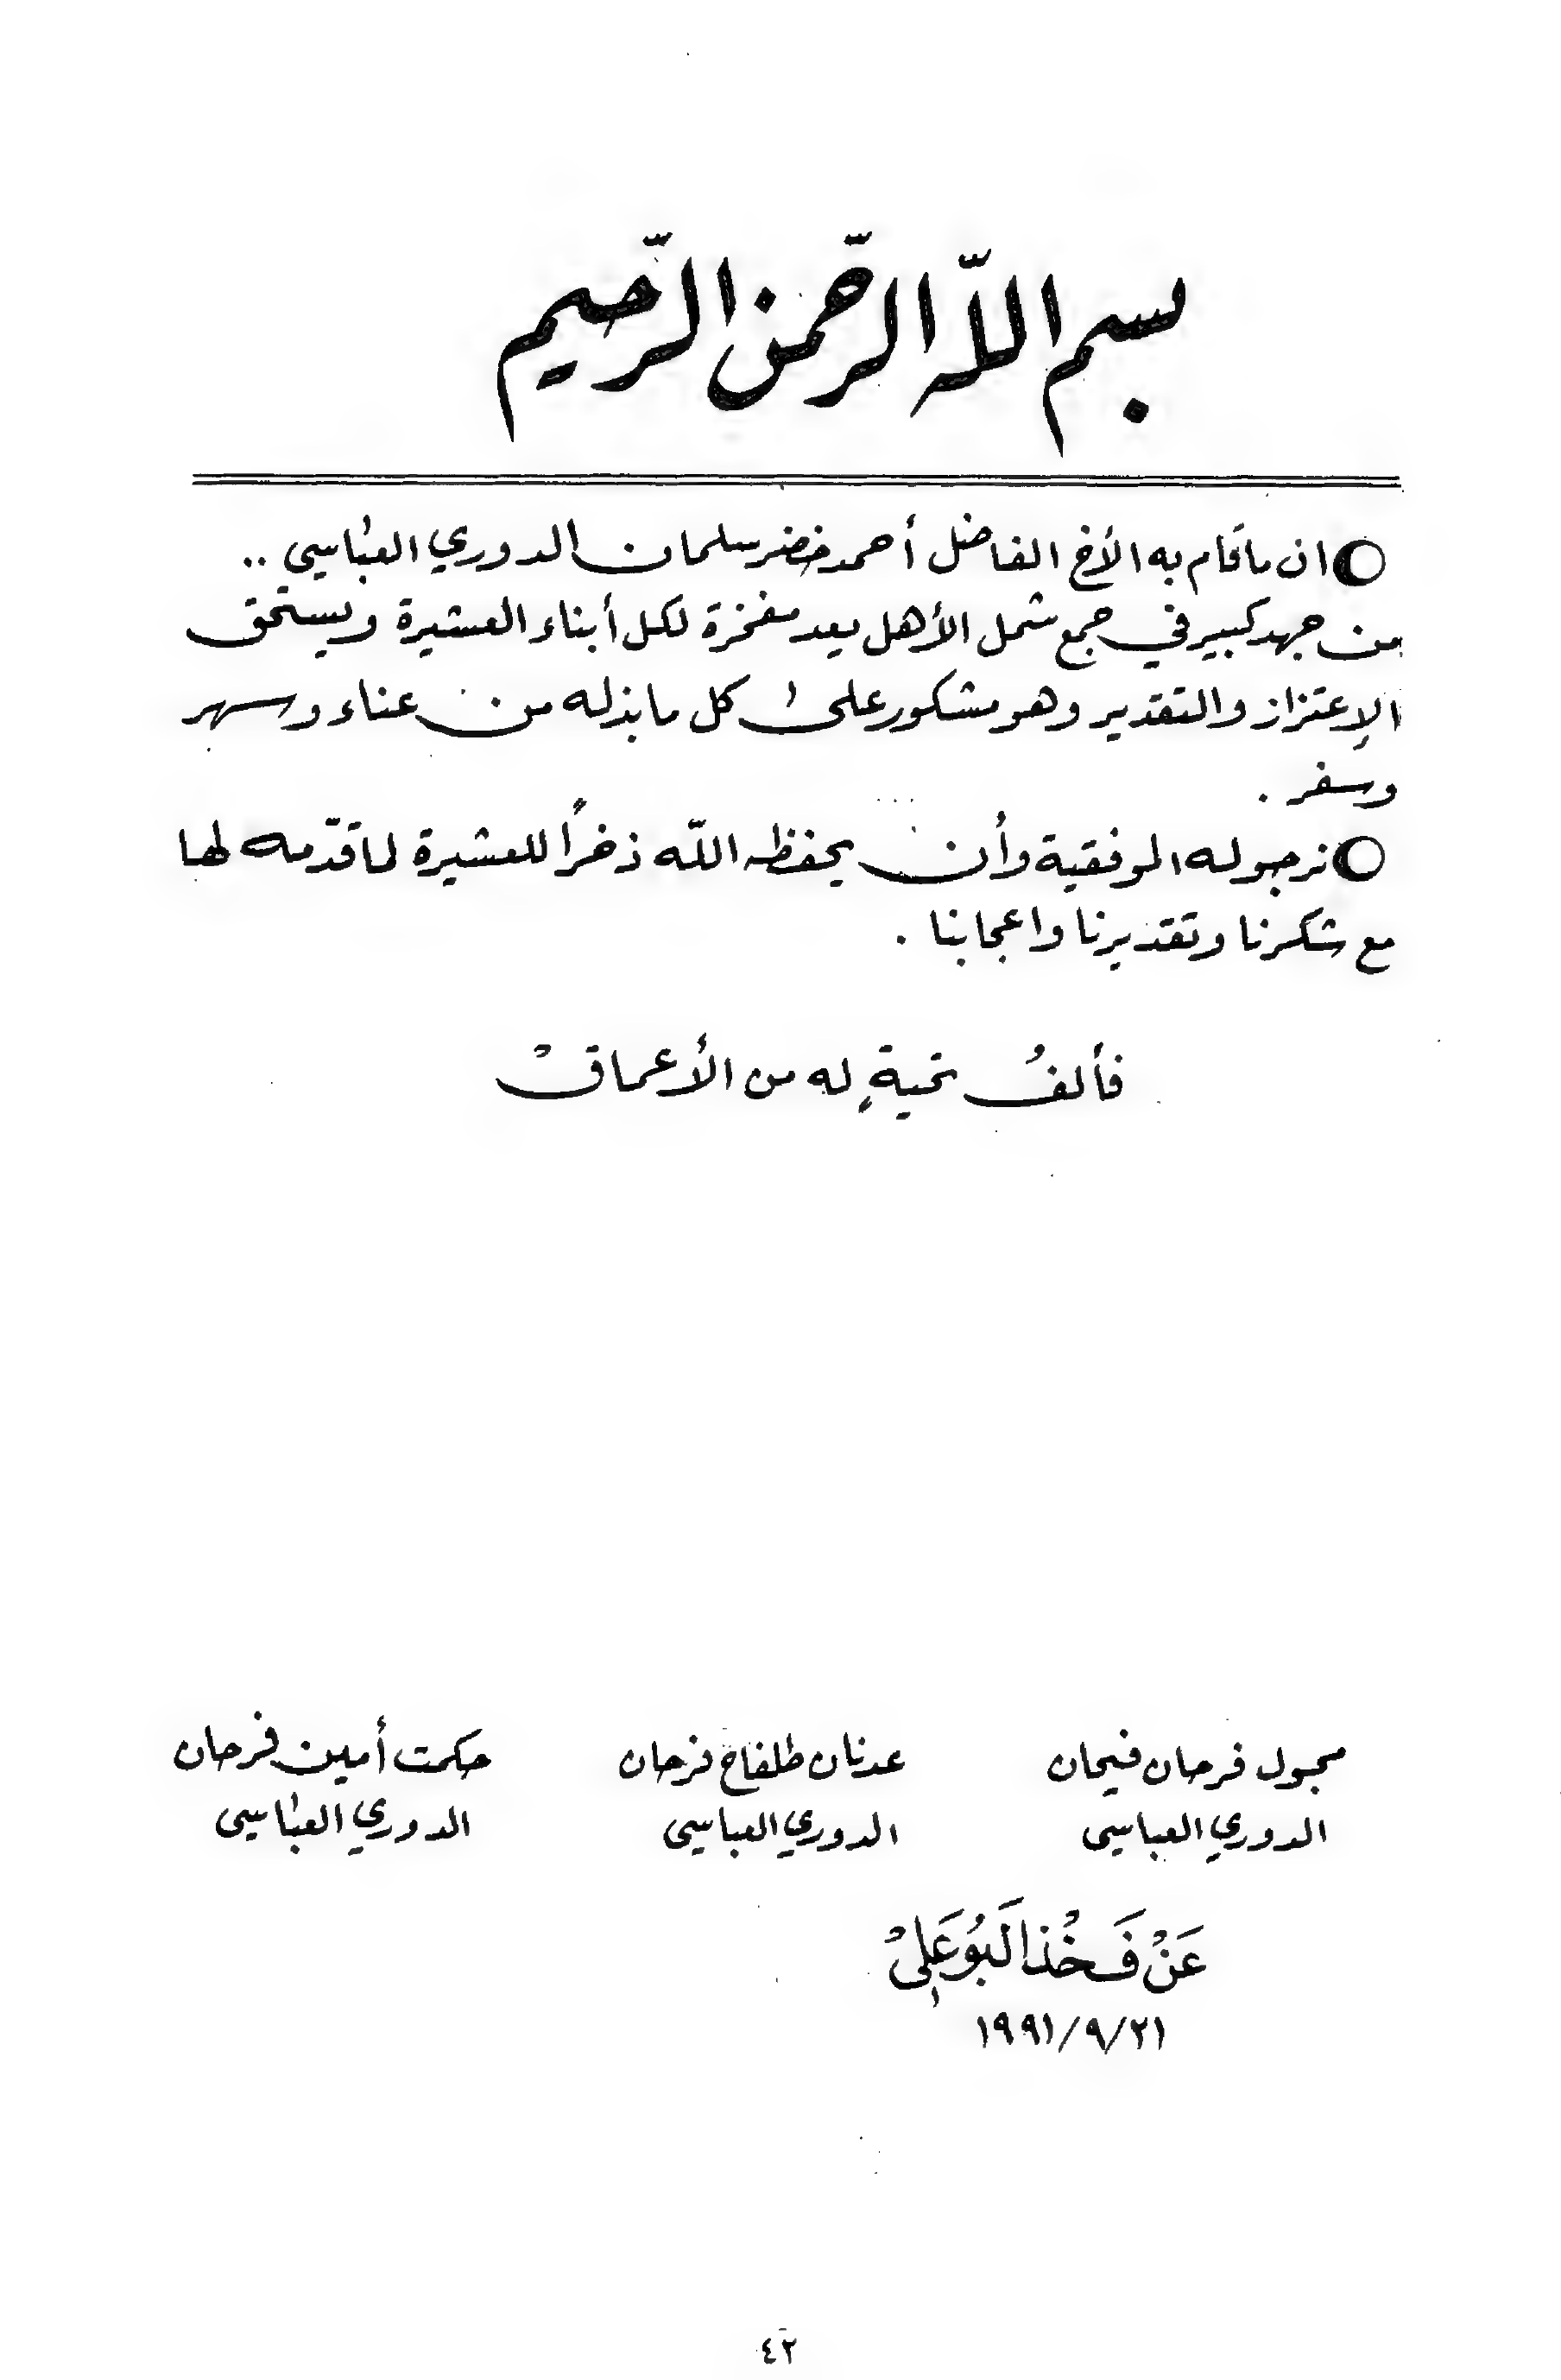 بسم اللّه الرّحمن الرّحيم
ان ماقام به الأخ الفاضل أحمد خضر سلمان الدوري العباسي ..
من جهد كبير في جمع شمل الأهل يعد مفخرة لكل أبناء العشيرة ويستحق
الإعتزاز والتقدير وهو مشكور على كل ما بذله من عناء وسهر
وسفر .
نرجو له الموفقية وأن يحفظه اللّه ذخراً للعشيرة لما قدّمه لها
مع شكرنا وتقديرنا واعجابنا .
فألفُ تحيةٍ له من الأعماقْ
مجول فرحان فيحان
الدوري العباسي
عدنان طلفاح فرحان
الدوري العباسي
حكمت أمين فرحان
الدوري العباسي
عَنْ فَخْذ اَلبُوعَلِيْ
١٩٩١/٩/٢١
٤٢